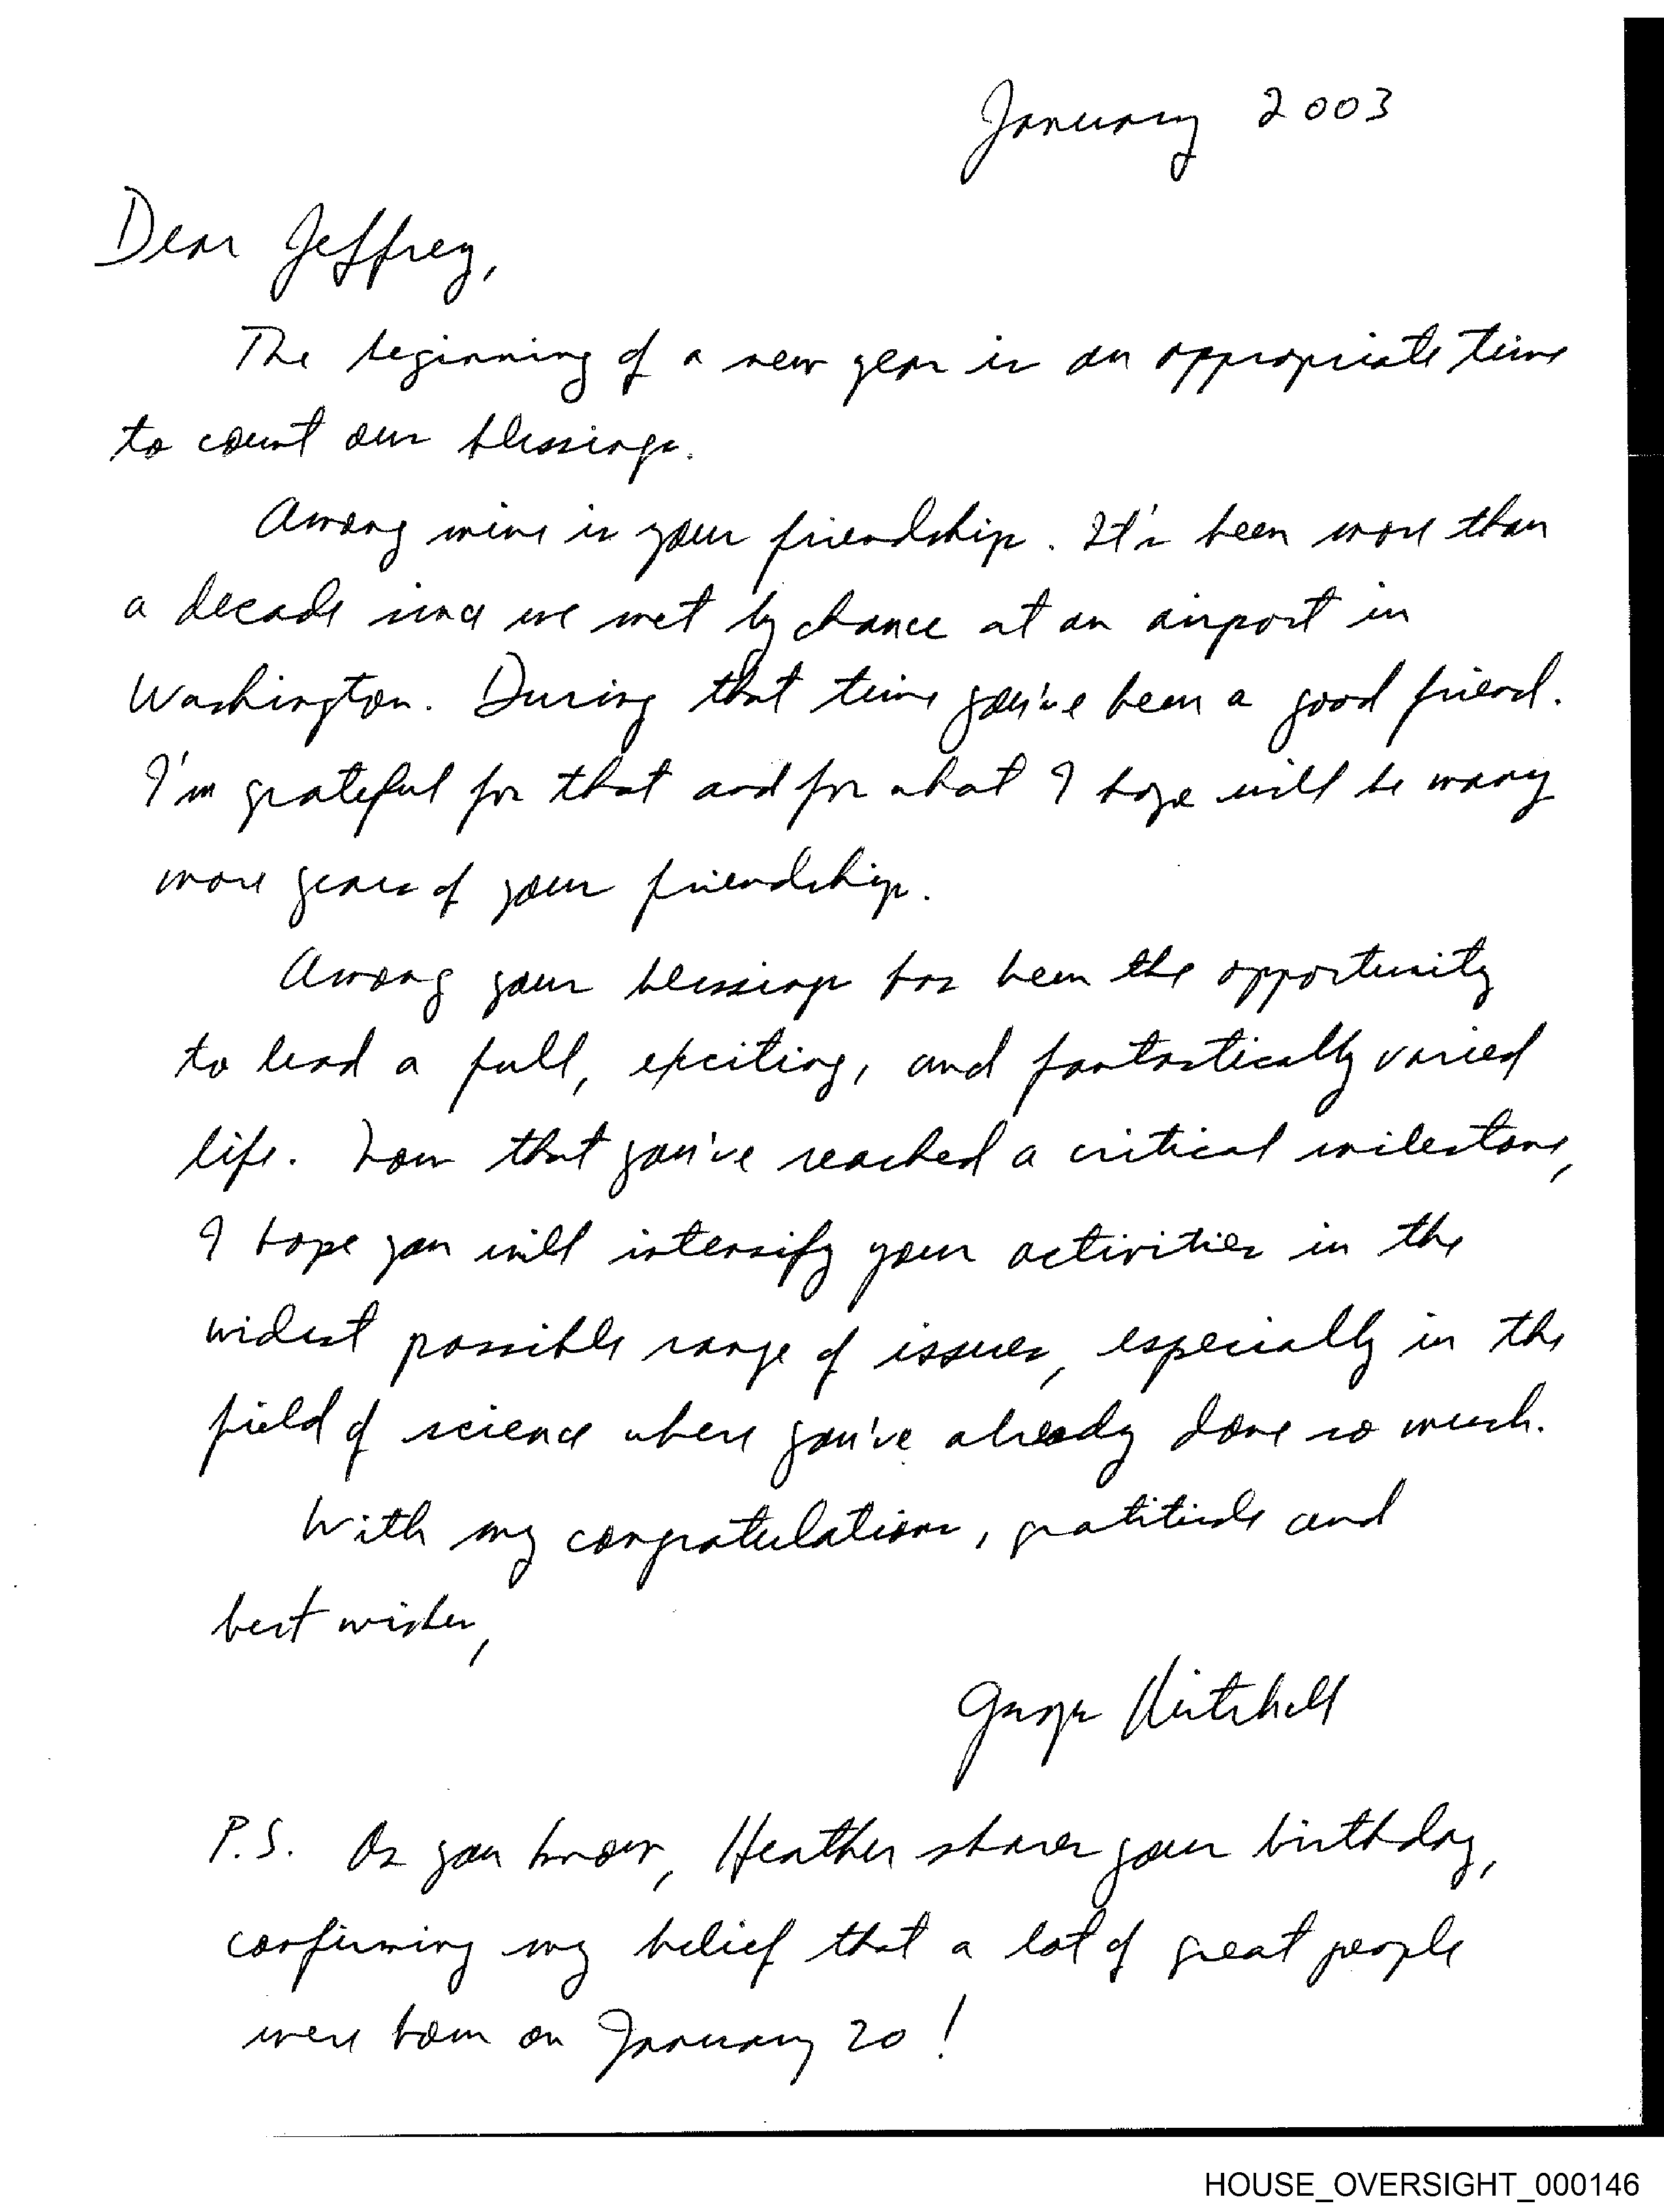 January 2003
Dear Jeffrey,
The beginning of a new year is an appropriate time
to count our blessings.
Among mine is your friendship. It's been more than
a decade since we met by chance at an airport in
Washington. During that time you've been a good friend.
I'm grateful for that and for what I hope will be many
more years of your friendship.
Among your blessings has been the opportunity
to lead a full, exciting, and fantastically varied
life. Now that you've reached a critical milestone,
I hope you will intensify your activities in the
widest possible range of issues, especially in the
field of science where you've already done so much.
With my congratulations, gratitude and
best wishes,
George Mitchell
P.S. As you know, Heather shares your birthday,
confirming my belief that a lot of great people
were born on January 20!
HOUSE_OVERSIGHT_000146